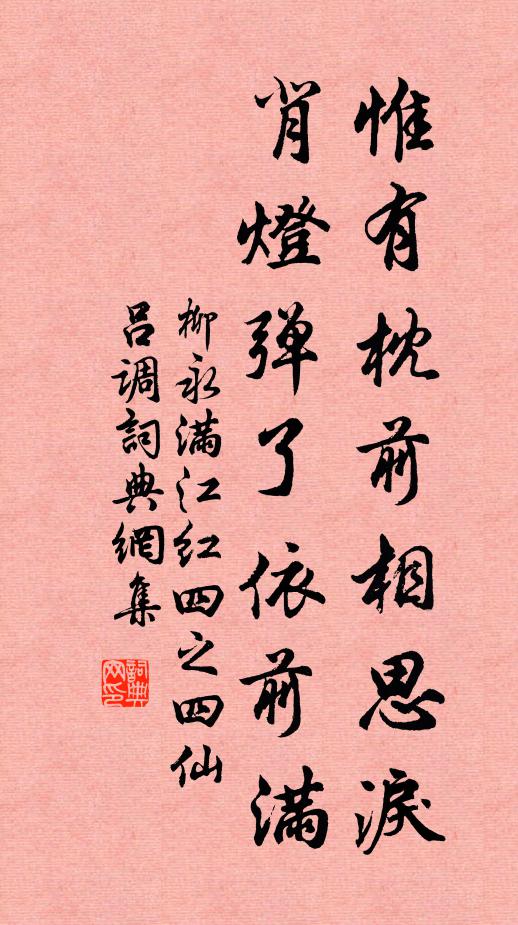 惟有枕前相思淚
背燈弹了依前满
柳永满江红四之四仙
吕调詞典網集
詞典
网印